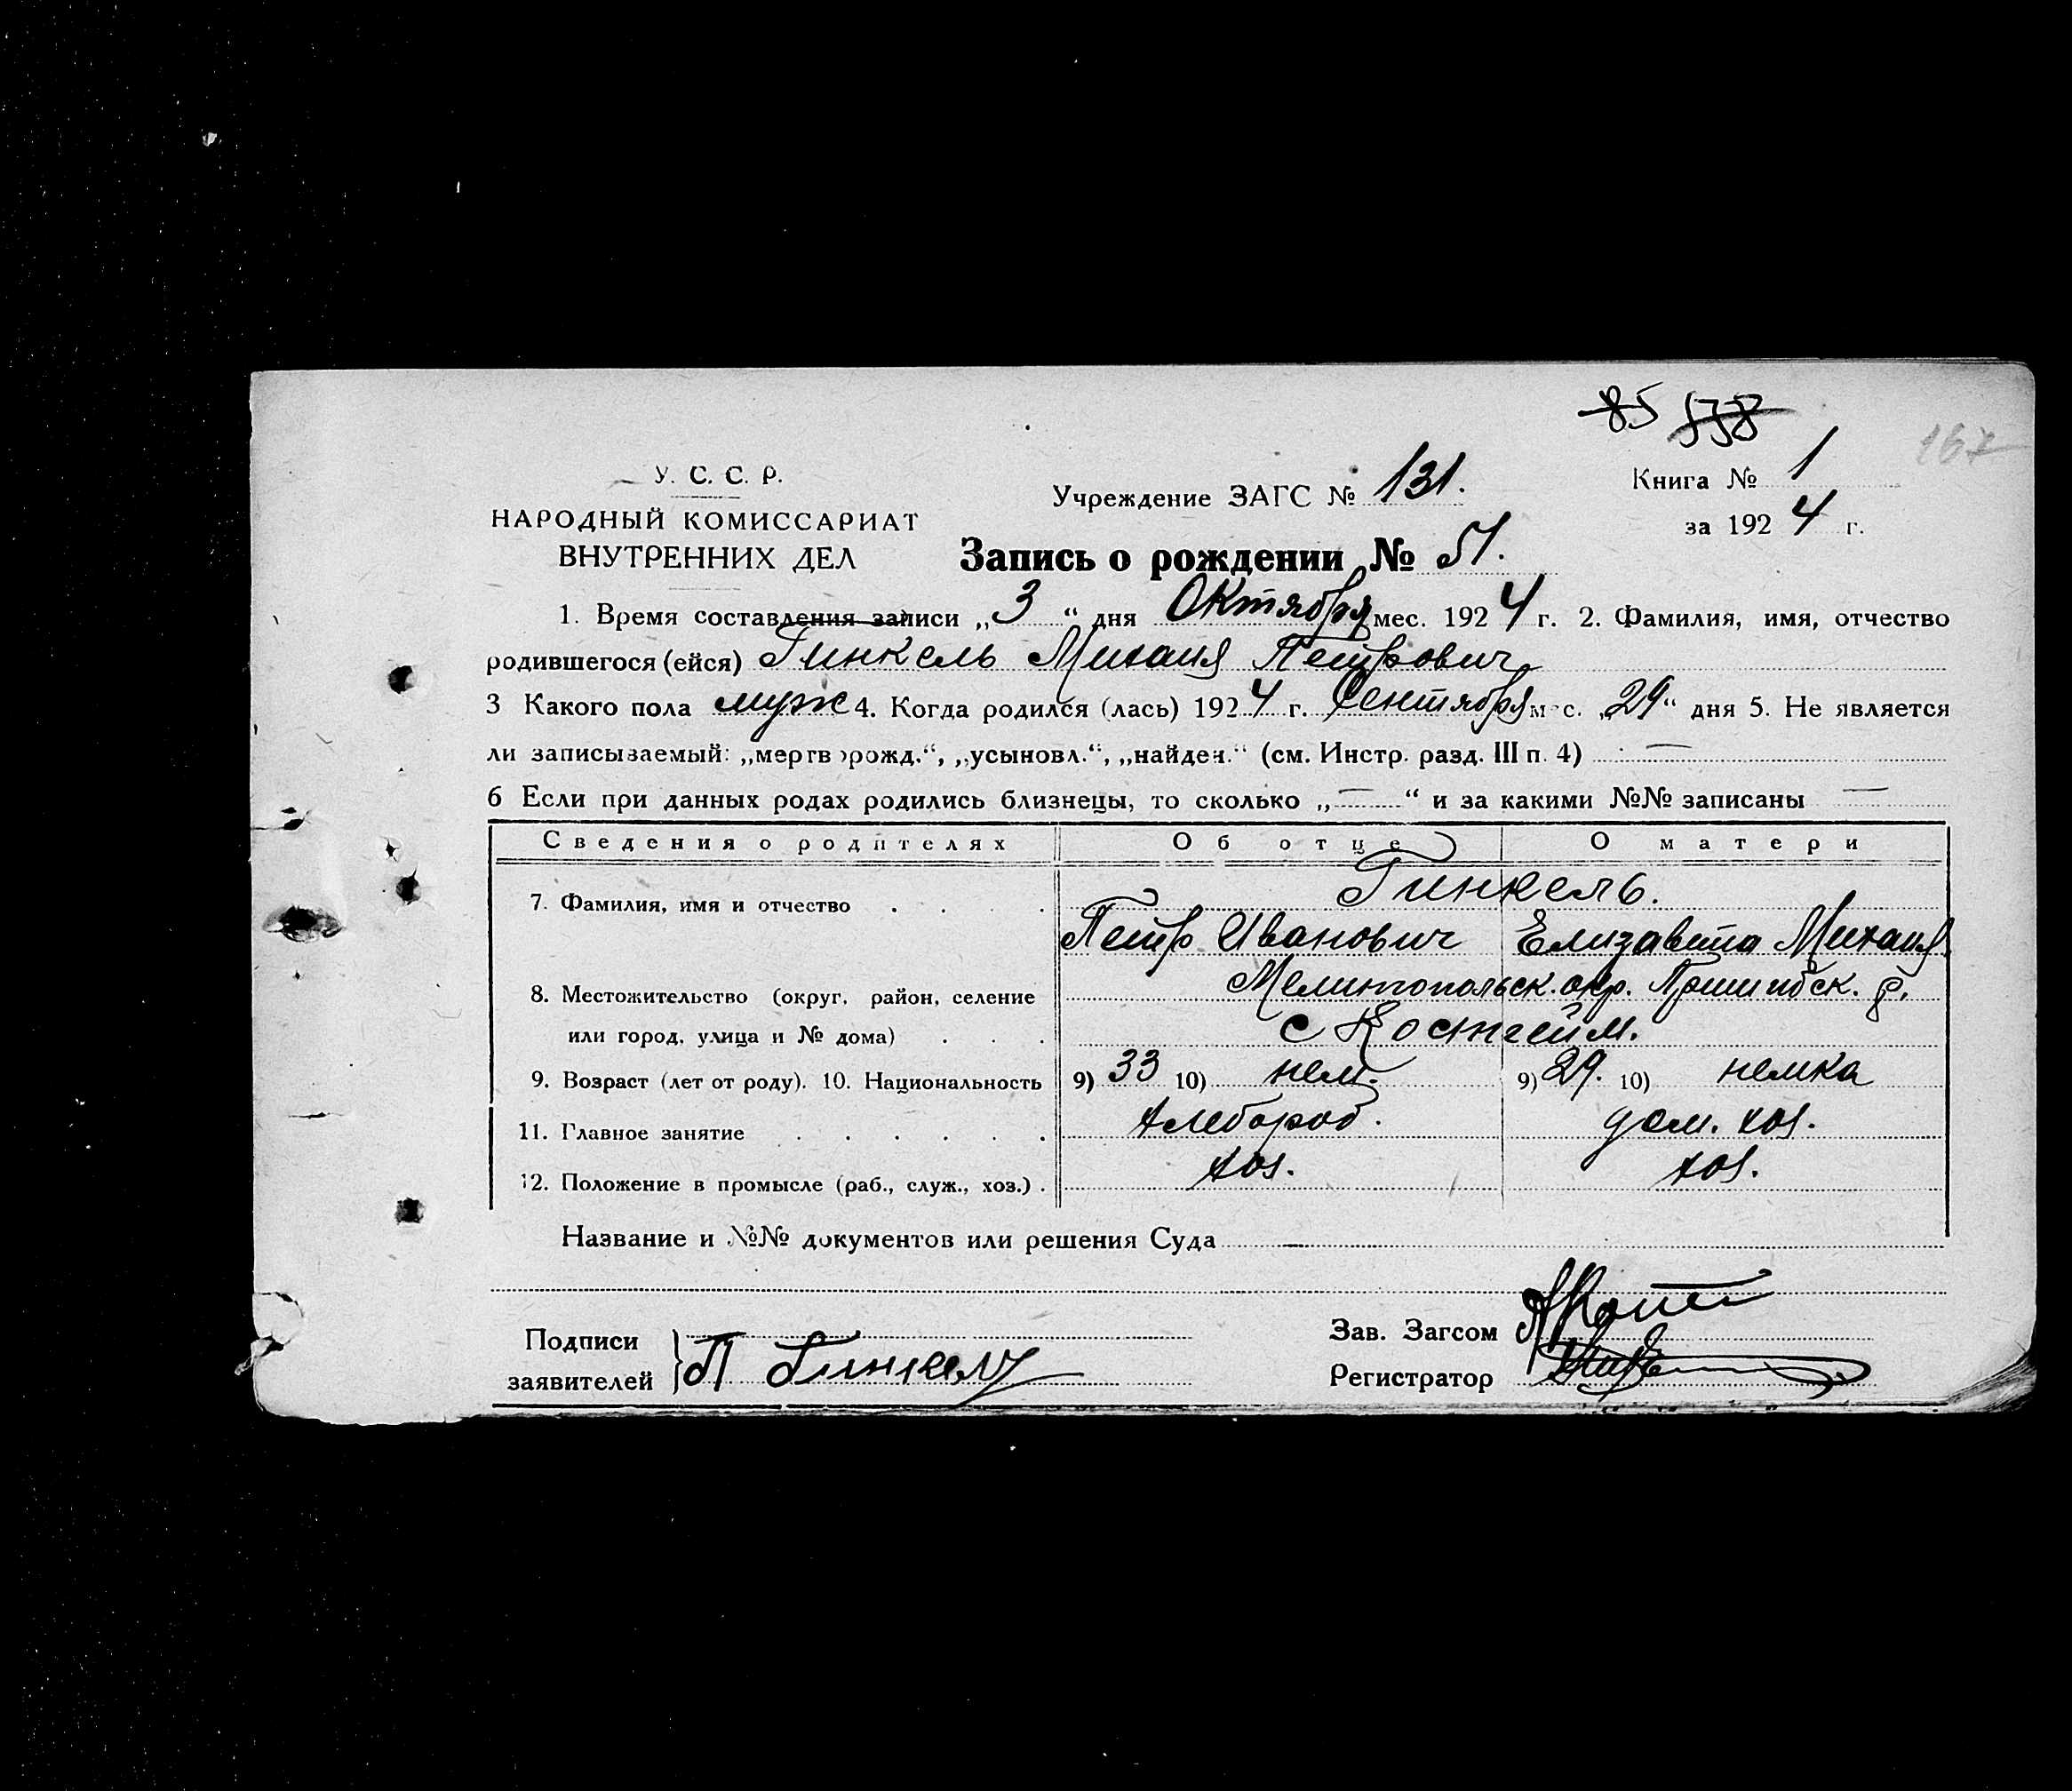 85 538
167
У. С. С. Р.
НАРОДНЫЙ КОМИССАРИАТ
ВНУТРЕННИХ ДЕЛ
Учреждение ЗАГС № 131.
Книга № 1
за 1924 г.
Запись о рождении № 51.
1. Время составления записи „3“ дня Октября мес. 1924 г. 2. Фамилия, имя, отчество
родившегося (ейся) Гинкель Михаил Петрович
3 Какого пола муж 4. Когда родился (лась) 1924 г. Сентября мес. „29“ дня 5. Не является
ли записываемый: „мертворожд.“, „усыновл.“, „найден.“ (см. Инстр. разд. III п. 4) —
6 Если при данных родах родились близнецы, то сколько „—“ и за какими №№ записаны —
Сведения о родителях Об отце О матери
Гинкель.
7. Фамилия, имя и отчество . . . .
Петр Иванович Елизавета Михаил.
8. Местожительство (округ, район, селение Мелитопольск. окр. Пришибск. р.
или город, улица и № дома) . . . с Костгейм.
9. Возраст (лет от роду). 10. Национальность 9) 33 10) нем. 9) 29. 10) немка
11. Главное занятие . . . . . . хлебороб. дом. хоз.
12. Положение в промысле (раб., служ., хоз.) . хоз. хоз.
Название и №№ документов или решения Суда —
Подписи
заявителей } П Гинкель
Зав. Загсом
Регистратор